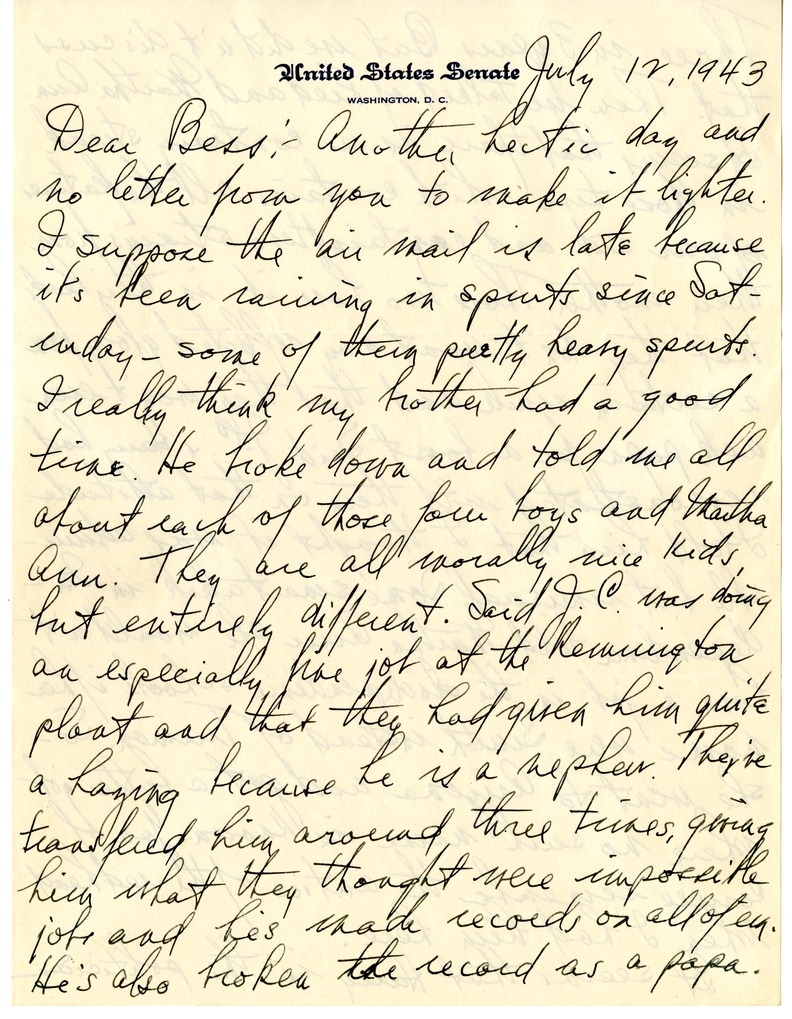 United States Senate
WASHINGTON, D. C.
July 12, 1943
Dear Bess:- Another hectic day and
no letter from you to make it lighter.
I suppose the air mail is late because
it's been raining in spurts since Sat-
urday - some of them pretty heavy spurts.
I really think my brother had a good
time. He broke down and told me all
about each of those four boys and Martha
Ann. They are all morally nice kids,
but entirely different. Said J.C. was doing
an especially fine job at the Remington
plant and that they had given him quite
a hazing because he is a nephew. They've
transfered him around three times, giving
him what they thought were impossible
jobs and he's made records on all of em.
He's also broken the record as a papa.